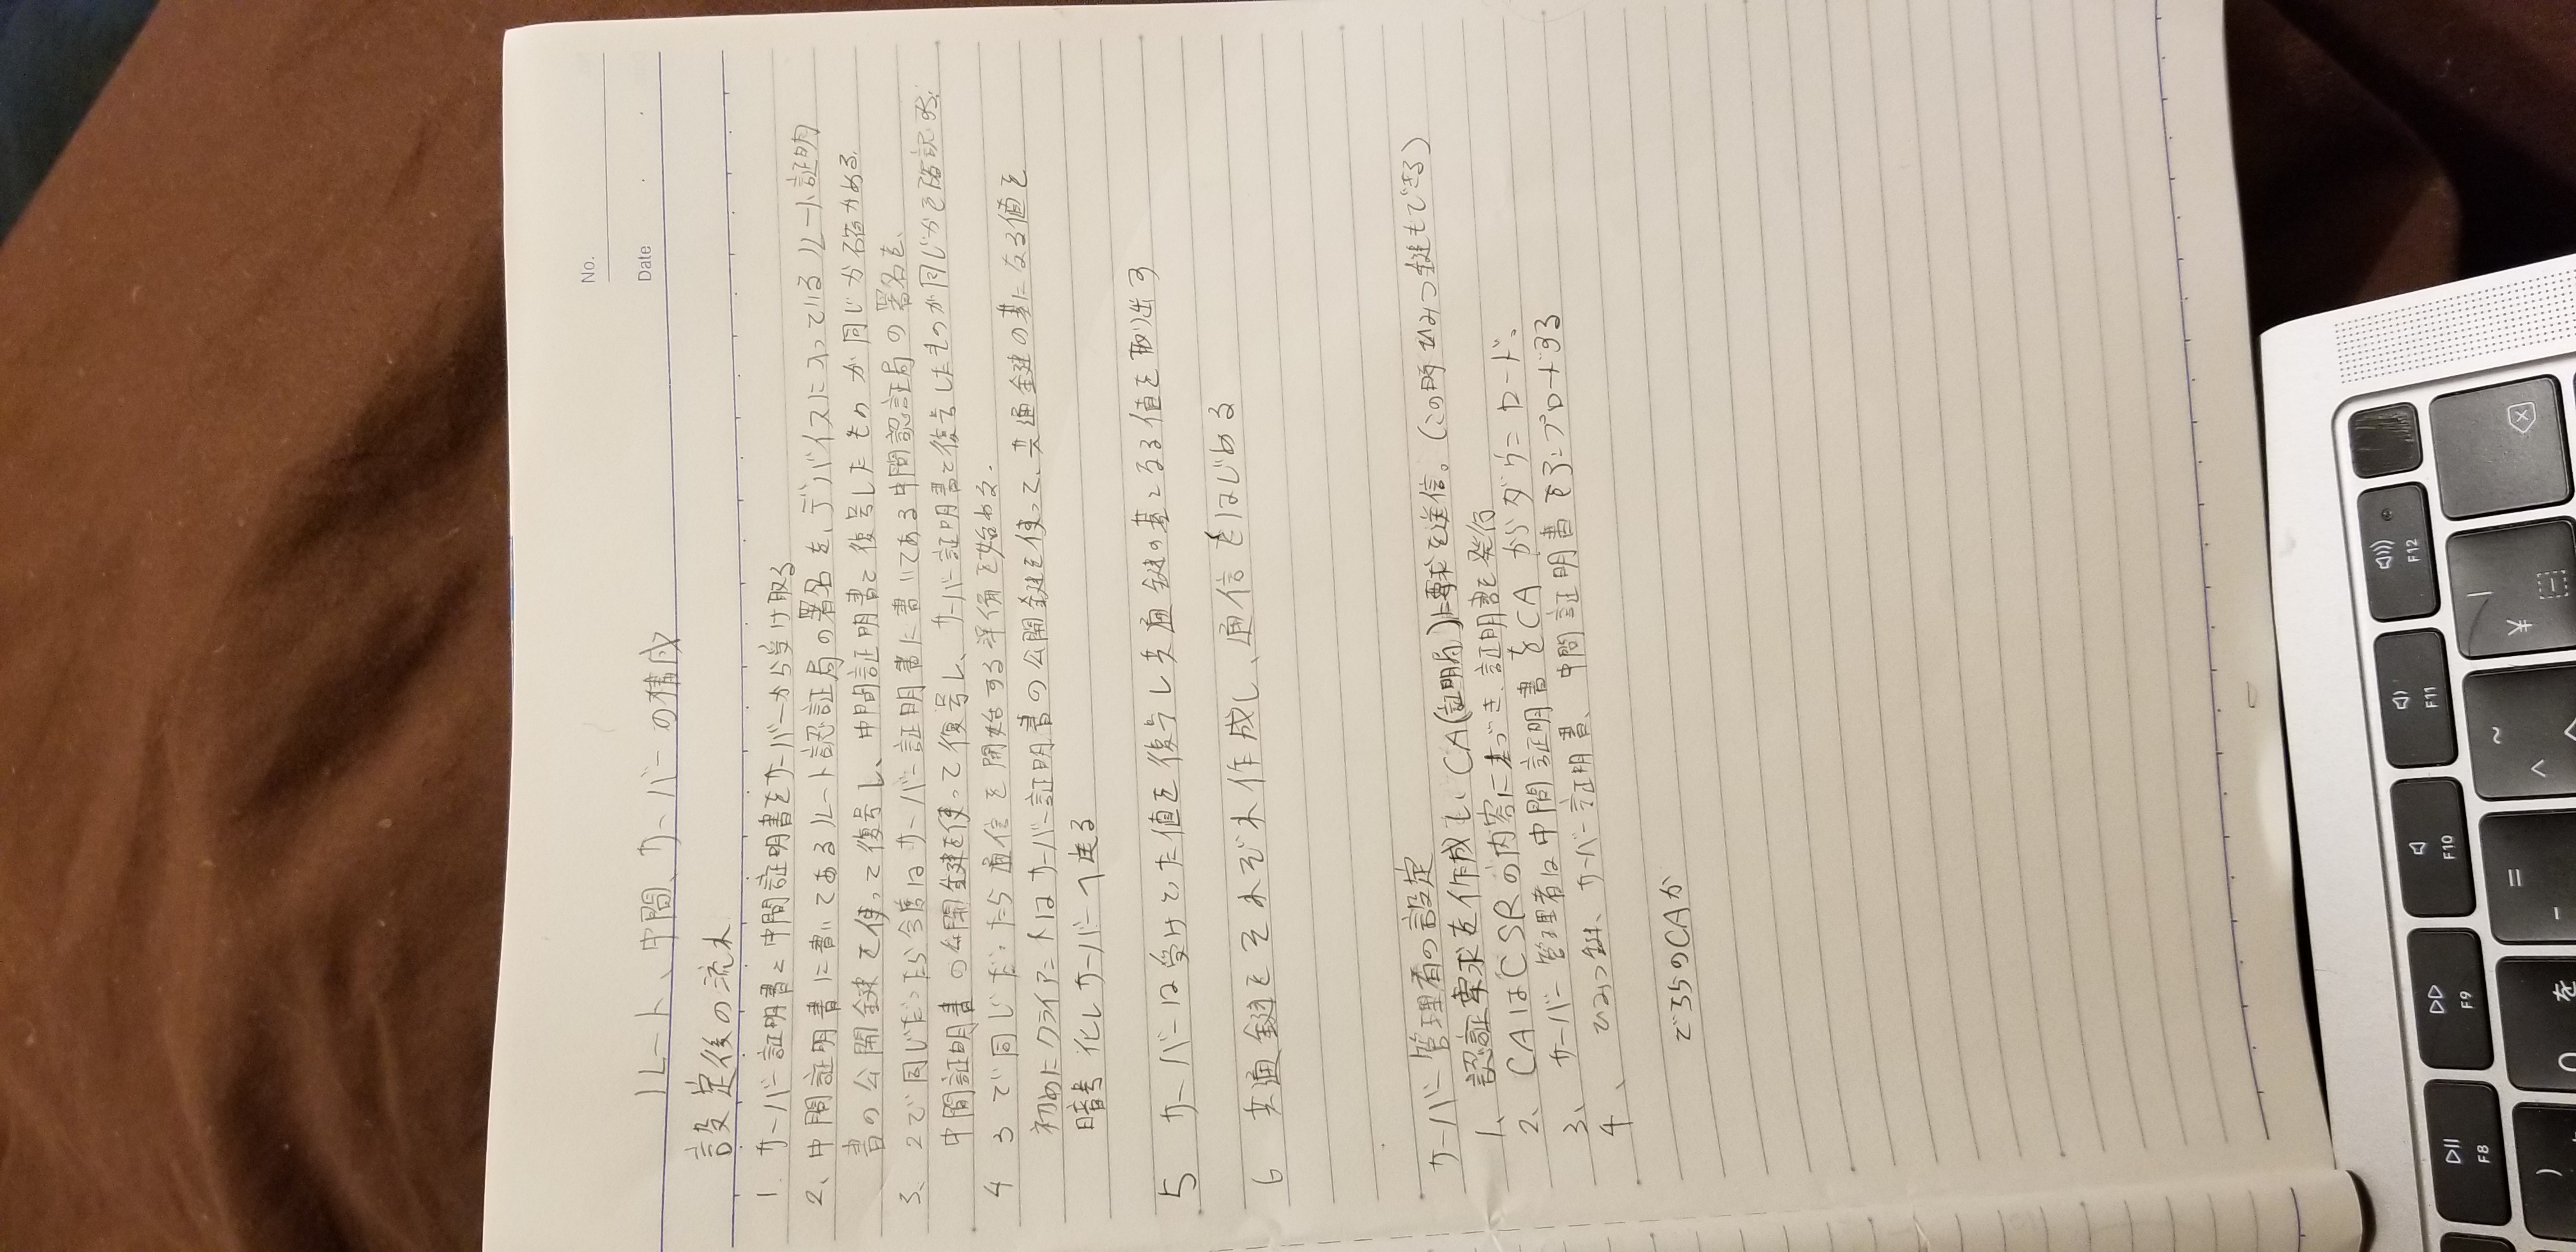 No.
Date
ルート、中間、サーバーの構成
設定後の流れ
1. サーバー証明書と中間証明書をサーバーから受け取る
2、中間証明書に書いてあるルート認証局の署名を、デバイスに入っているルート証明
書の公開鍵を使って復号し、中間証明書と復号したものが同じか確かめる。
3、2で同じだったら今度はサーバー証明書に書いてある中間認証局の署名を、
中間証明書の公開鍵を使って復号し、サーバー証明書と復号したものが同じかを確認する。
4 3で同じだったら通信を開始する準備を始める.
初めにクライアントはサーバー証明書の公開鍵を使って、共通鍵の基になる値を
暗号化しサーバーへ送る
5 サーバーは受けとった値を復号し共通鍵の基となる値を取り出す
6 共通鍵をそれぞれ作成し、通信をはじめる
サーバー管理者の設定
1、認証要求を作成し、CA(証明局)に要求を送信。(この時ひみつ鍵もできる)
2、CAはCSRの内容に基づき、証明書を発行
3、サーバー管理者は中間証明書をCAからダウンロード。
4、ひみつ鍵、サーバー証明書、中間証明書をアップロードする
どちらのCAか
F8
F9
F10
F11
F12
)
を
=
-
~
^
|
¥